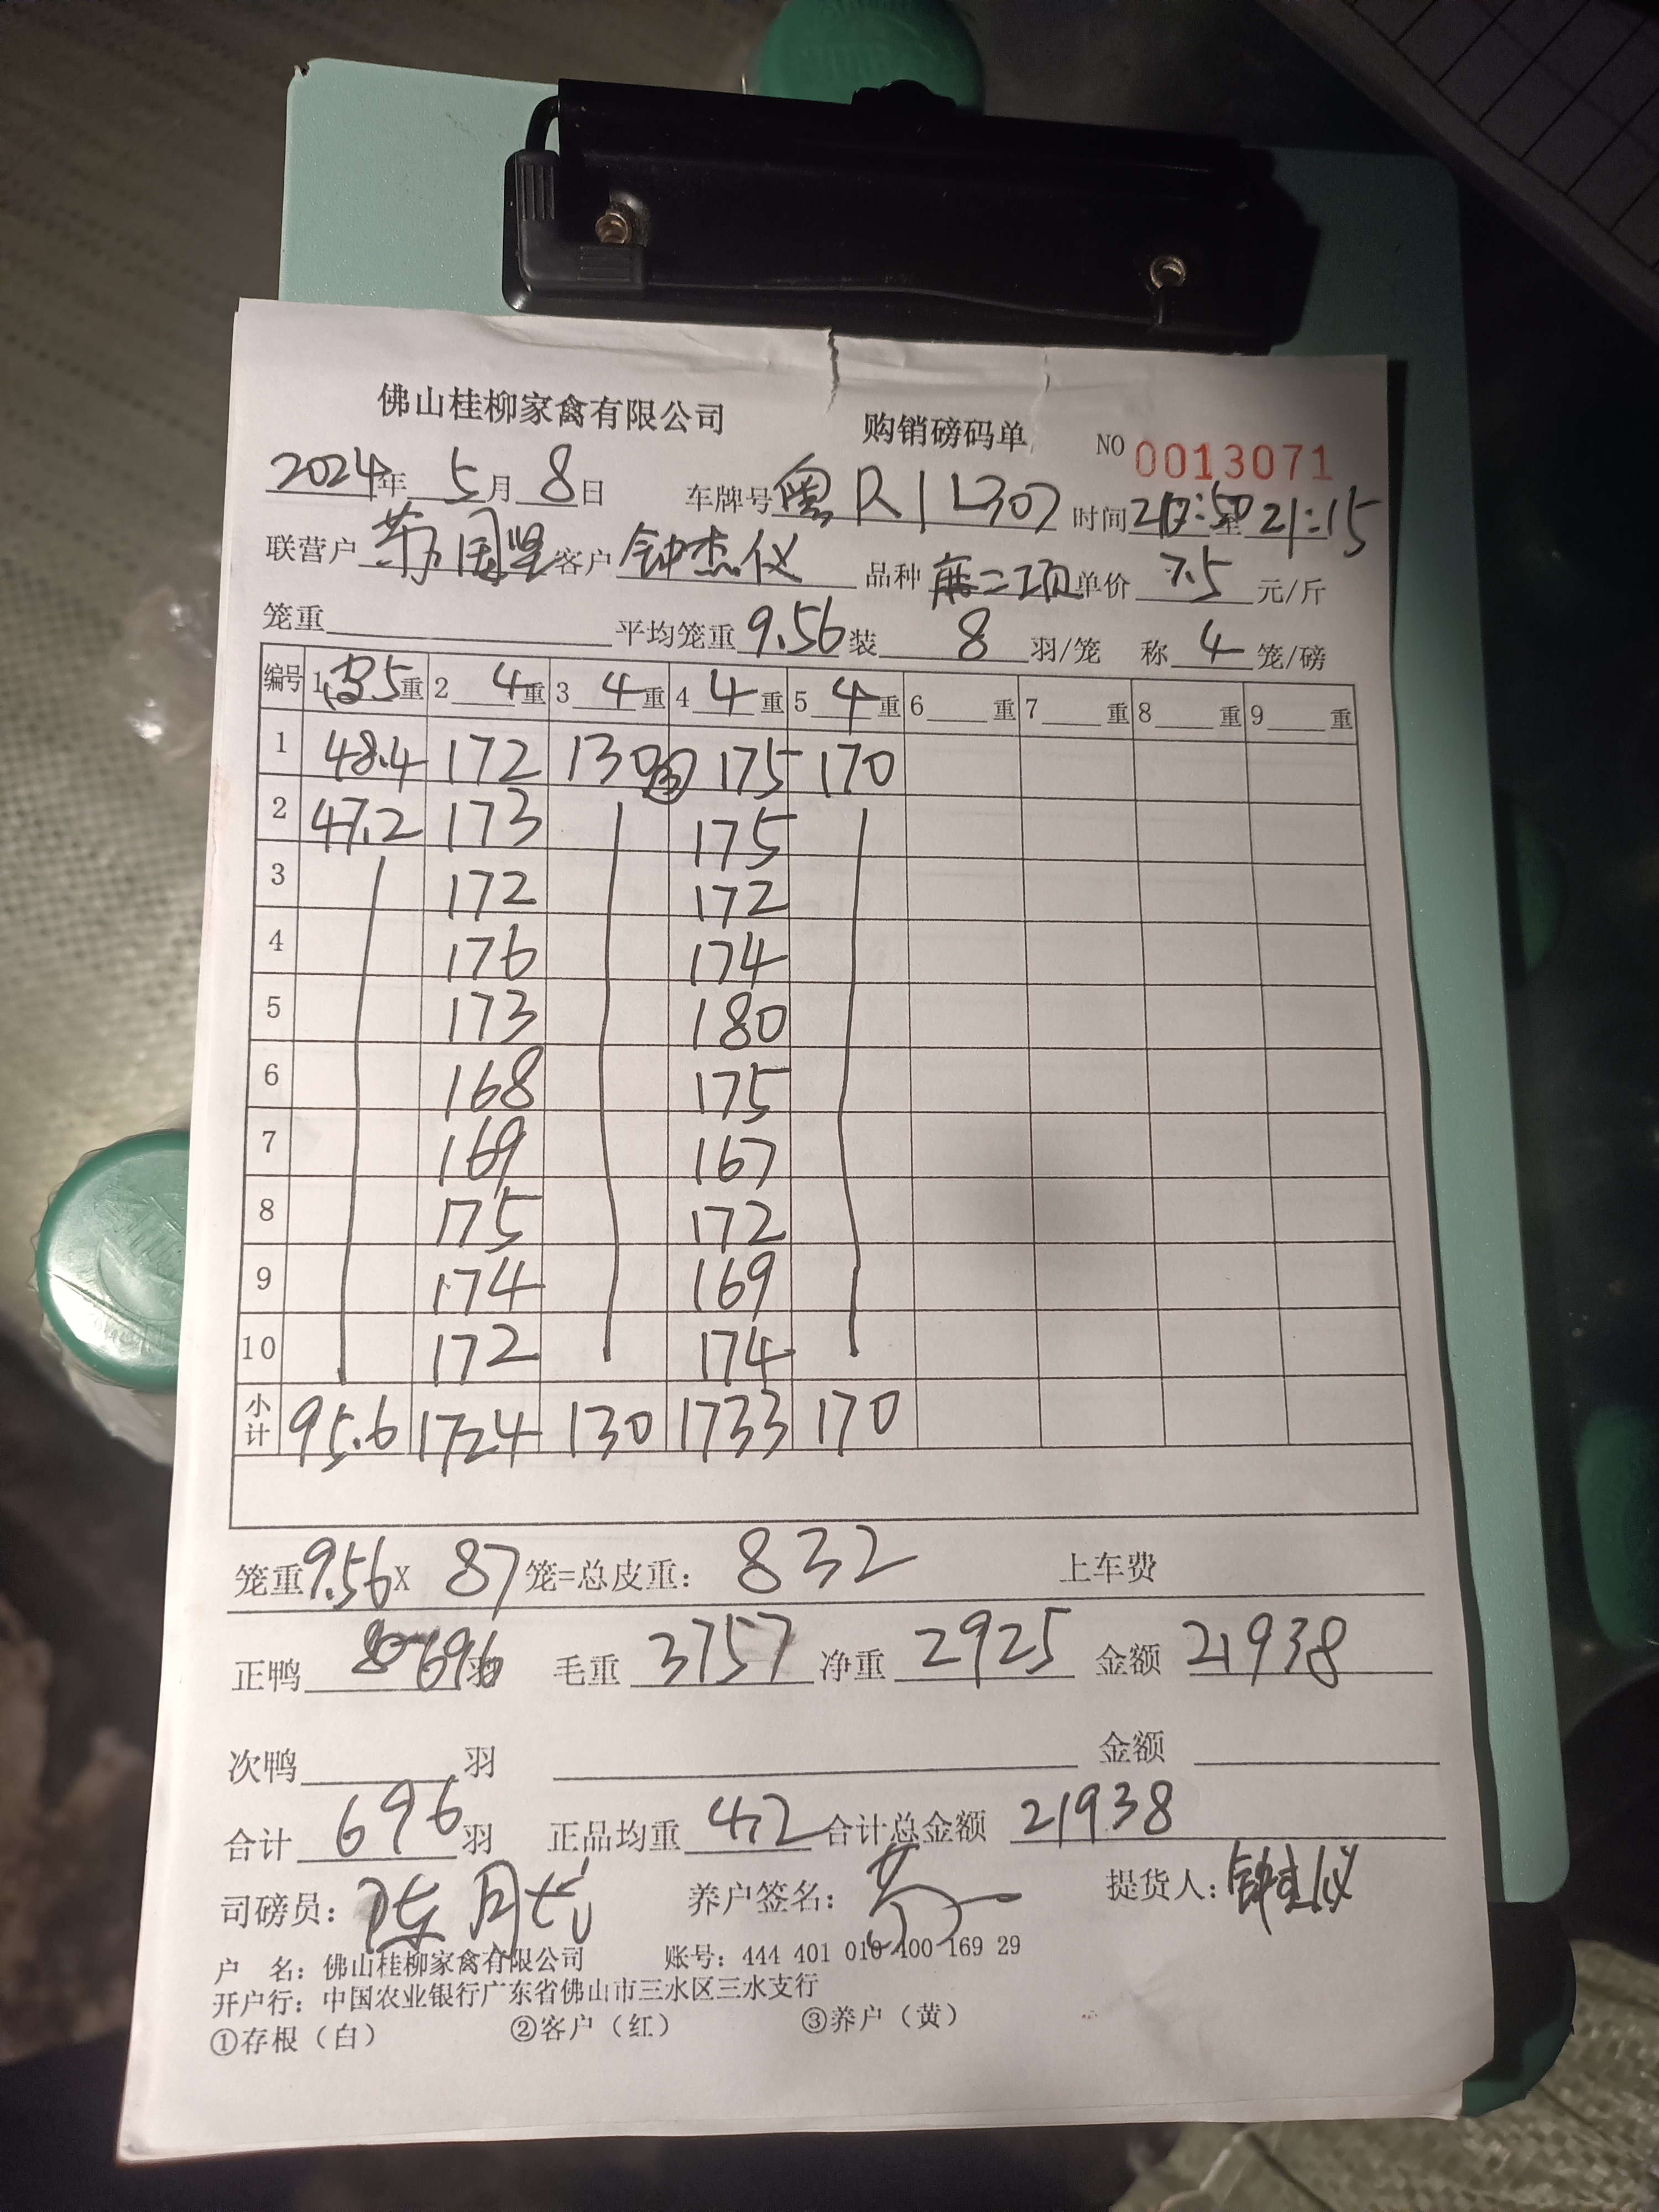 佛山桂柳家禽有限公司 购销磅码单 NO 0013071
2024年 5月 8日 车牌号 粤R1L307 时间 至 21:15
联营户 国坚 客户 钟杰仪 品种 单价 7.5 元/斤
笼重 平均笼重 9.56 装 8 羽/笼 称 4 笼/磅
编号 1 皮5重 2 4重 3 4重 4 4重 5 4重 6 重 7 重 8 重 9 重
1 48.4 172 130③ 175 170
2 47.2 173 175
3 172 172
4 176 174
5 173 180
6 168 175
7 169 167
8 175 172
9 174 169
10 172 174
小计 95.6 1724 130 1733 170
笼重9.56X 87笼=总皮重: 832 上车费
正鸭 696羽 毛重 3757 净重 2925 金额 21938
次鸭 羽 金额
合计 696 羽 正品均重 4.2 合计总金额 21938
司磅员: 陈 养户签名: 提货人: 钟杰仪
户 名: 佛山桂柳家禽有限公司 账号: 444 401 010 400 169 29
开户行: 中国农业银行广东省佛山市三水区三水支行
①存根（白） ②客户（红） ③养户（黄）